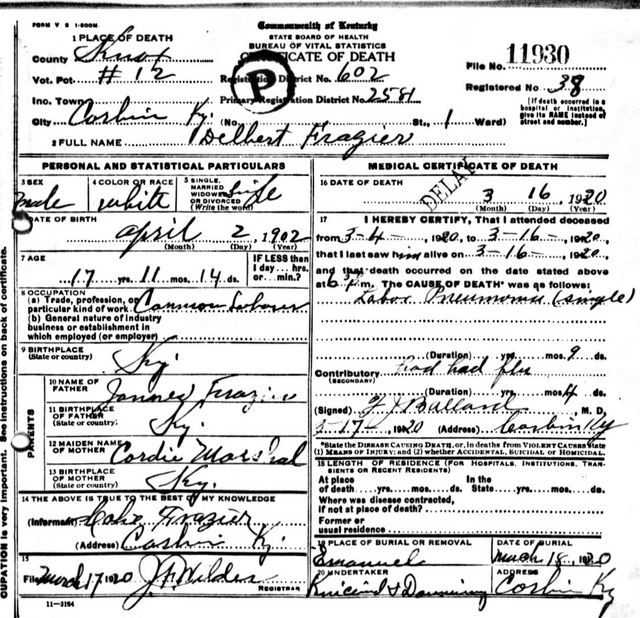 FORM V S 1-200M
Commonwealth of Kentucky
STATE BOARD OF HEALTH
BUREAU OF VITAL STATISTICS
CERTIFICATE OF DEATH
1 PLACE OF DEATH
County Knox
Vot. Pct # 12
Inc. Town
City Corbin Ky. (No. St., 1 Ward)
P
Registration District No. 602
Primary Registration District No. 2581
File No. 11930
Registered No. 38
[If death occurred in a hospital or institution, give its NAME instead of street and number.]
2 FULL NAME Delbert Frazier
PERSONAL AND STATISTICAL PARTICULARS
3 SEX
male
4 COLOR OR RACE
white
5 SINGLE, MARRIED WIDOWED OR DIVORCED (Write the word)
Single
DATE OF BIRTH
April 2, 1902
(Month) (Day) (Year)
7 AGE
17 yrs. 11 mos. 14 ds.
IF LESS than 1 day...hrs. or...min.?
8 OCCUPATION
(a) Trade, profession, or particular kind of work Common Laborer
(b) General nature of industry business or establishment in which employed (or employer)
9 BIRTHPLACE
(State or country) Ky.
PARENTS
10 NAME OF FATHER Frazier
11 BIRTHPLACE OF FATHER
(State or country) Ky.
12 MAIDEN NAME OF MOTHER Cordie Marshal
13 BIRTHPLACE OF MOTHER
(State or country) Ky.
14 THE ABOVE IS TRUE TO THE BEST OF MY KNOWLEDGE
(Informant) Frazier
(Address) Corbin Ky.
15
Filed March 17 1920 J. F. Wilder
REGISTRAR
11-3184
MEDICAL CERTIFICATE OF DEATH
16 DATE OF DEATH
DELAY
3 16 1920
(Month) (Day) (Year)
17 I HEREBY CERTIFY, That I attended deceased
from 3-4- 1920, to 3-16- 1920,
that I last saw him alive on 3-16- 1920,
and that death occurred on the date stated above
at 6 P.m. The CAUSE OF DEATH* was as follows:
Lobar Pneumonia (single)
(Duration) yrs. mos. 9 ds.
Contributory had flu
(SECONDARY)
(Duration) yrs. mos. 4 ds.
(Signed) Ballard M. D.
3-17- 1920 (Address) Corbin Ky
*State the DISEASE CAUSING DEATH, or, in deaths from VIOLENT CAUSES State
(1) MEANS OF INJURY; and (2) whether ACCIDENTAL, SUICIDAL OR HOMICIDAL.
18 LENGTH OF RESIDENCE (FOR HOSPITALS, INSTITUTIONS, TRANSIENTS OR RECENT RESIDENTS)
At place of death yrs. mos. ds. In the State yrs. mos. ds.
Where was disease contracted, if not at place of death?
Former or usual residence
19 PLACE OF BURIAL OR REMOVAL
Emanuel
DATE OF BURIAL
March 18, 1920
20 UNDERTAKER
ADDRESS
Corbin Ky
OCCUPATION is very important. See instructions on back of certificate.